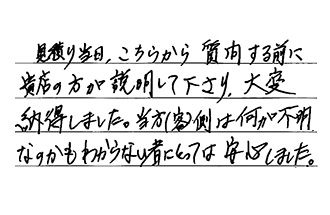 見積り当日、こちらから質問する前に
貴店の方が説明して下さり、大変
納得しました。当方(客)側は何が不明
なのかもわからない者にとっては安心しました。